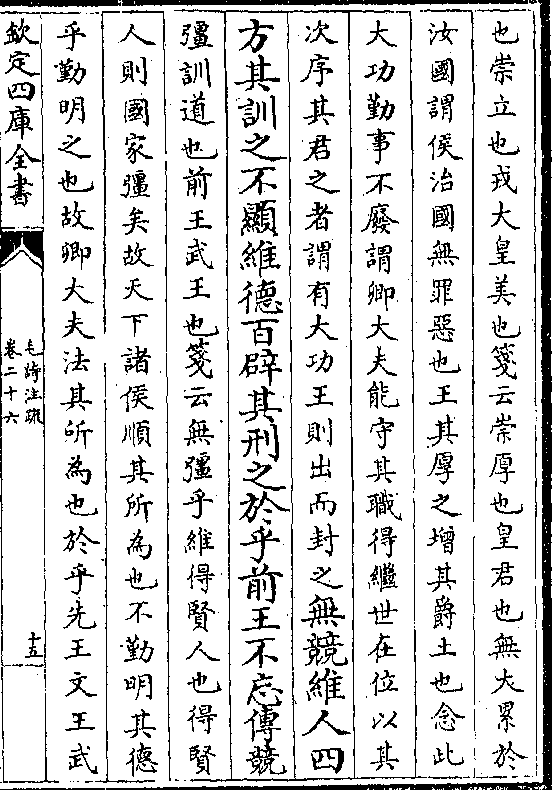 也崇立也戎大皇美也箋云崇厚也皇君也無大累於
汝國謂侯治國無罪惡也王其厚之增其爵土也念此
大功勤事不廢謂卿大夫能守其職得繼世在位以其
次序其君之者謂有大功王則出而封之無競維人四
方其訓之不顯維德百辟其刑之於乎前王不忘傳競
彊訓道也前王武王也箋云無彊乎維得賢人也得賢
人則國家彊矣故天下諸侯順其所為也不勤明其德
乎勤明之也故卿大夫法其所為也於乎先王文王武
欽定四庫全書
毛詩注疏
卷二十六
十五